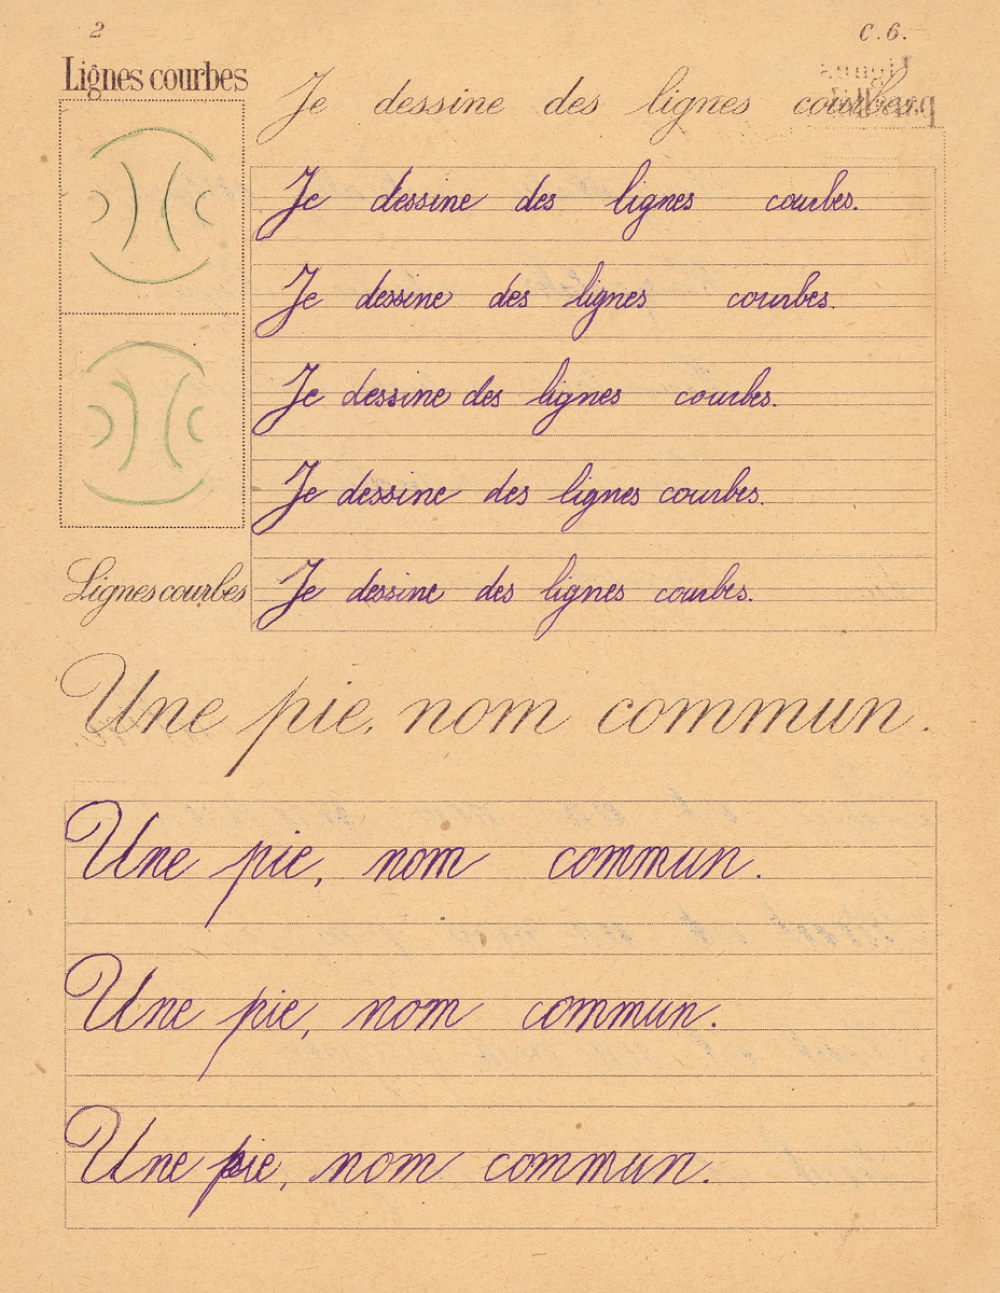 2
C. 6.
Lignes courbes
Je dessine des lignes courbes.
Je dessine des lignes courbes.
Je dessine des lignes courbes.
Je dessine des lignes courbes.
Je dessine des lignes courbes.
Je dessine des lignes courbes.
Lignes courbes
Une pie, nom commun.
Une pie, nom commun.
Une pie, nom commun.
Une pie, nom commun.